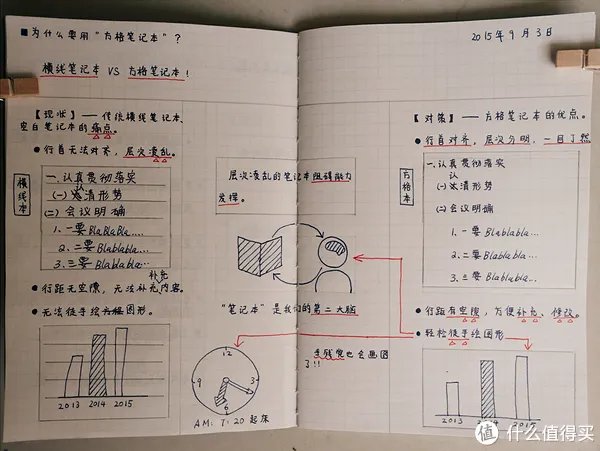 ■为什么要用“方格笔记本”？
2015年9月3日
横线笔记本 VS 方格笔记本！
【现状】——传统横线笔记本、
空白笔记本的痛点。
●行首无法对齐，层次凌乱。
横线本
一、认真贯彻落实
认
(一)清形势
(二)会议明确
1、一要BlaBlaBla...
2、二要Blablabla...
3、三要Blablabla...
补充
●行距无空隙，无法补充内容。
●无法徒手绘图形。
2013 2014 2015
层次凌乱的笔记本阻碍能力
发挥。
“笔记本”是我们的第二大脑
手残党也会画图
了!!
12
3
6
9
AM: 7:20 起床
【对策】——方格笔记本的优点。
●行首对齐，层次分明，一目了然
方格本
一、认真贯彻落实
认
(一)清形势
(二)会议明确
1、一要Blablabla...
2、二要Blablabla...
3、三要Blablabla...
●行距有空隙，方便补充、修改。
●轻松徒手绘图形
2013 2014 2015
值 什么值得买